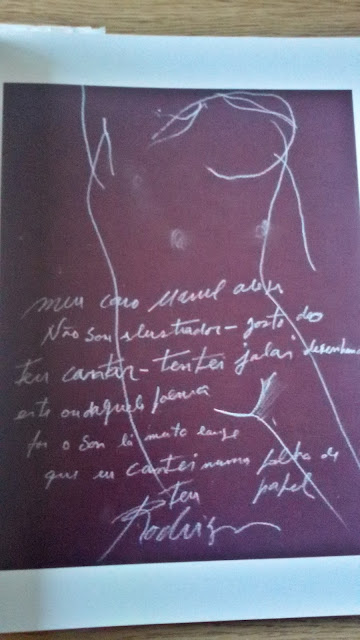 meu caro Manuel
Não sou ilustrador – gosto do
teu cantar – tentei falar desenhando
este ou daquele poema
foi o som lá muito longe
que eu cantei numa folha de
papel
teu
Rodrigo